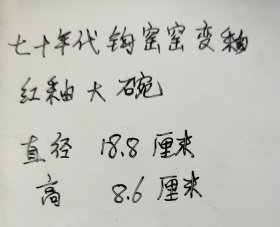 七十年代钧窑窑变釉
红釉大碗
直径 18.8 厘米
高 8.6 厘米